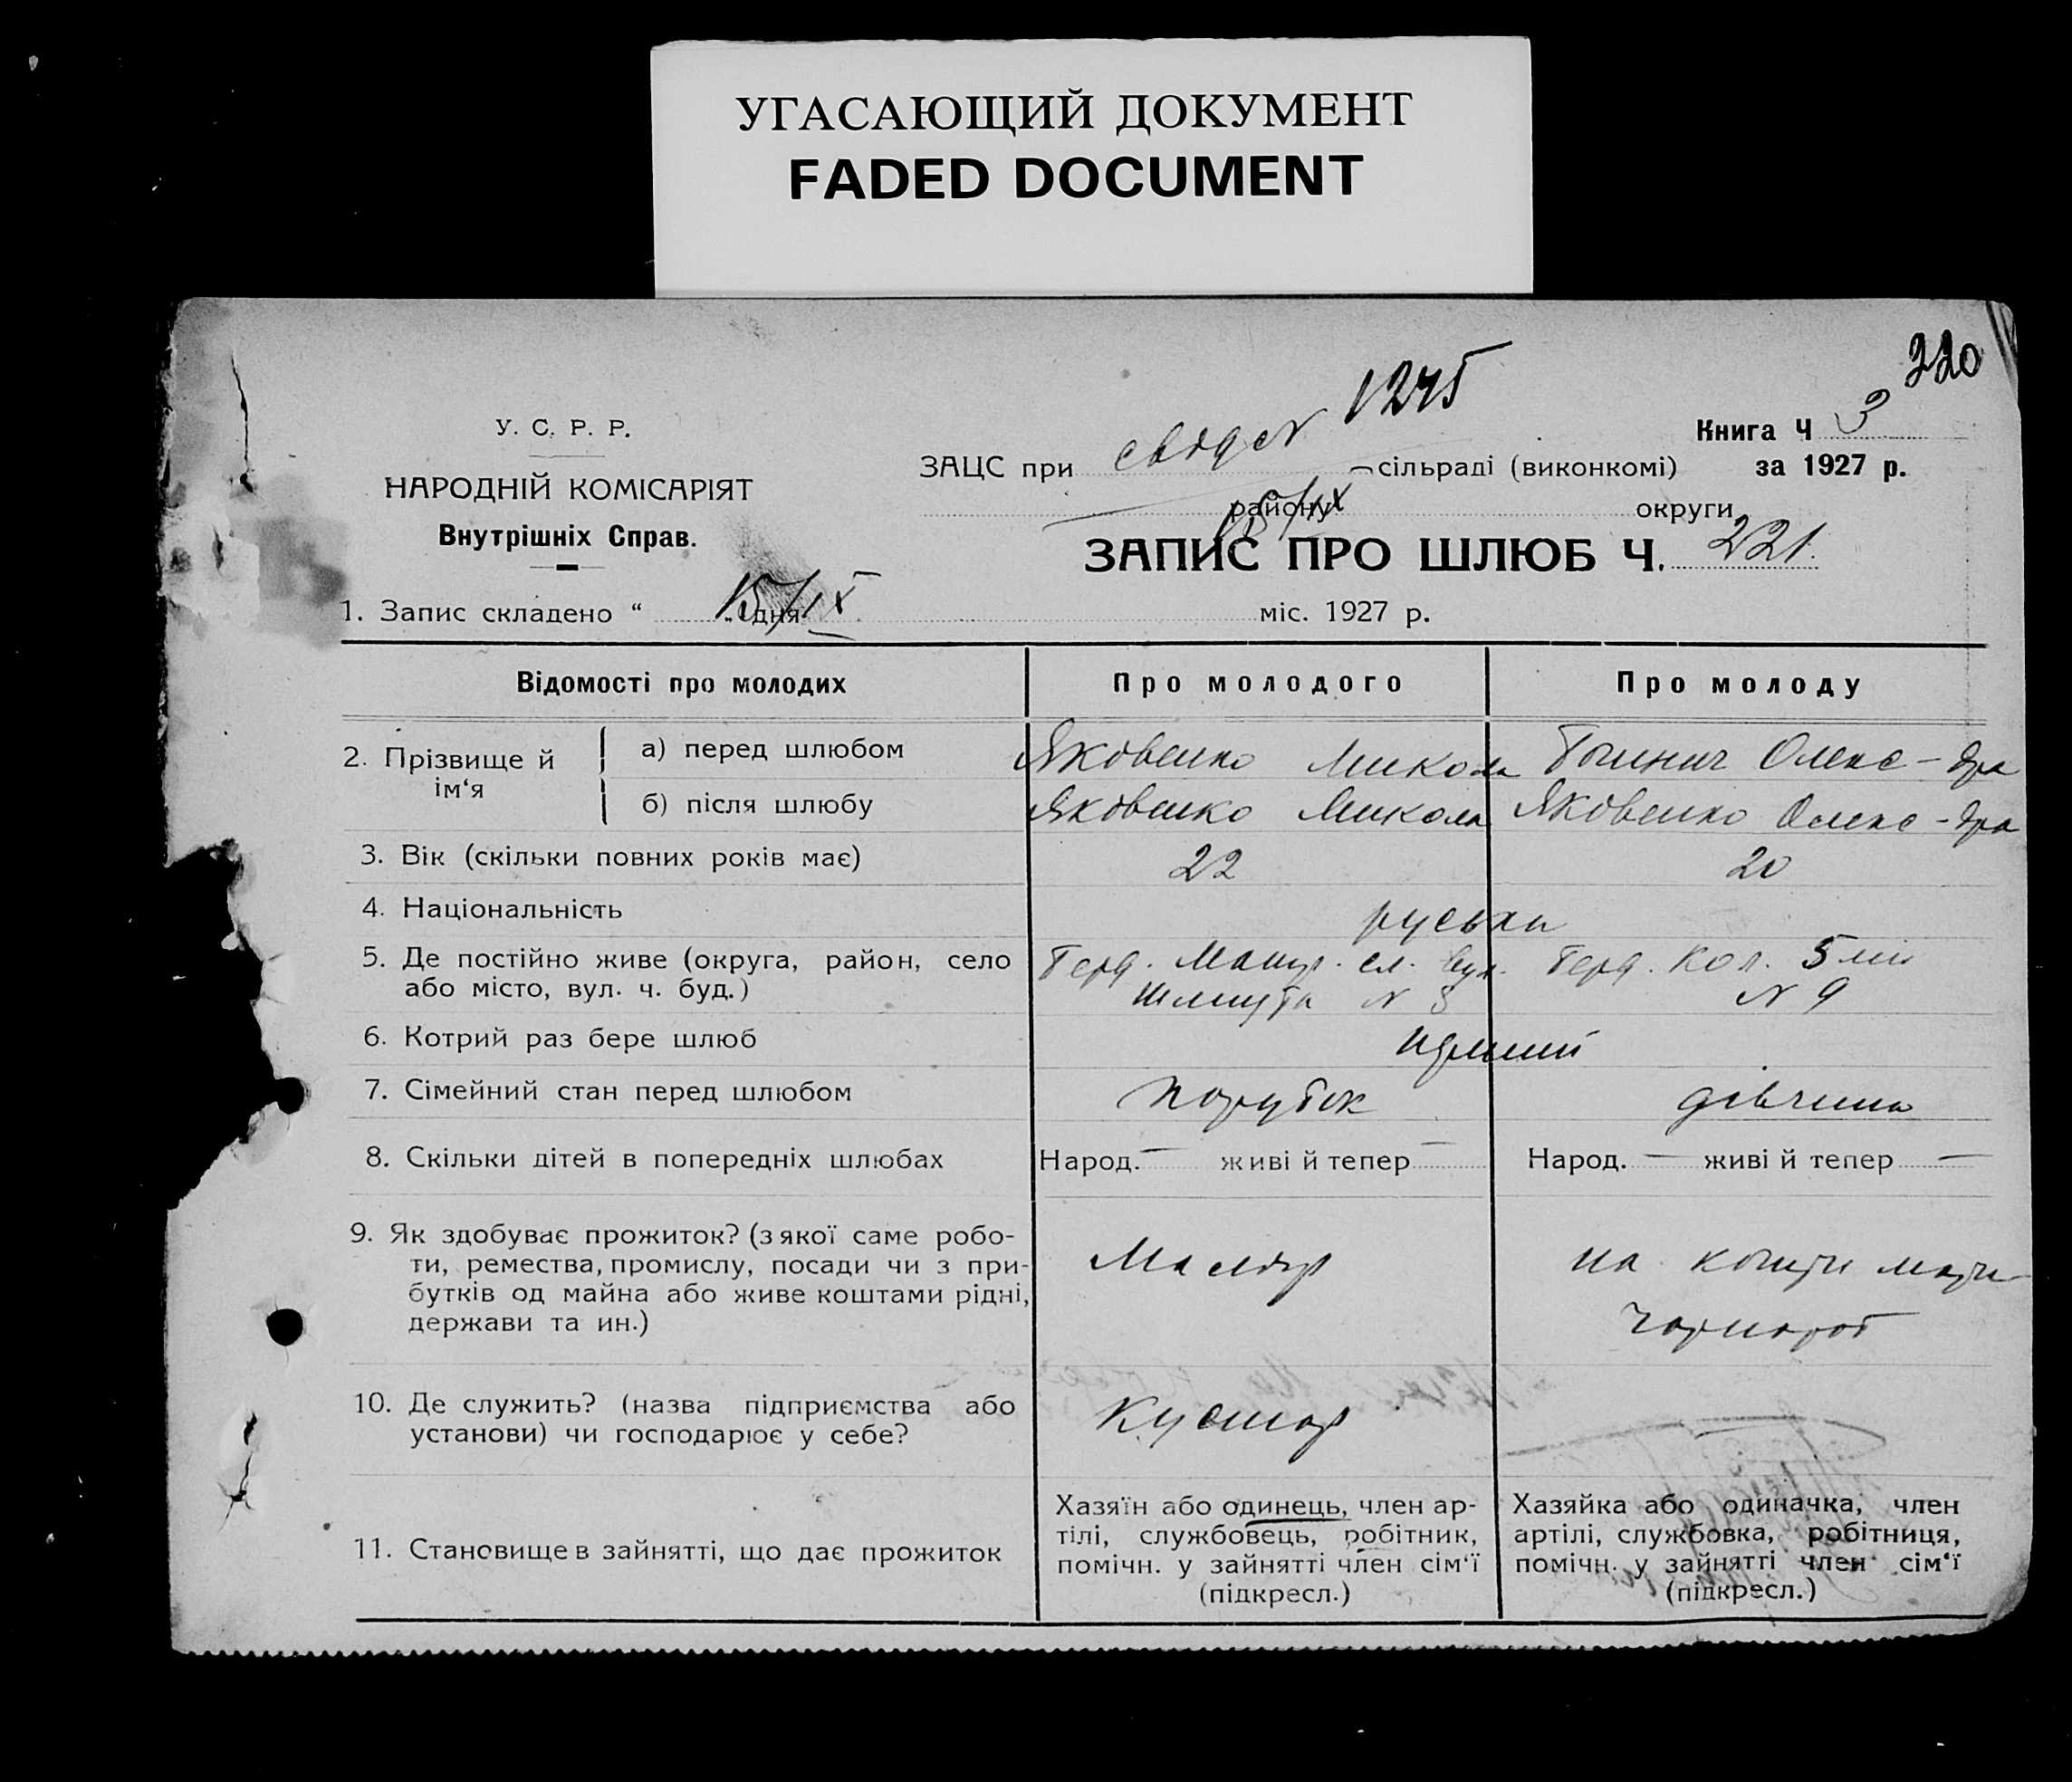 УГАСАЮЩИЙ ДОКУМЕНТ
FADED DOCUMENT
220
1245
У. С. Р. Р.
Книга Ч 3
ЗАЦС при сільраді (виконкомі) за 1927 р.
НАРОДНІЙ КОМІСАРІЯТ
району округи
15/IX
Внутрішніх Справ.
ЗАПИС ПРО ШЛЮБ Ч. 221.
1. Запис складено “ 15/IX дня міс. 1927 р.
Відомості про молодих Про молодого Про молоду
2. Прізвище й ім‘я
а) перед шлюбом Яковенко Микола Олекс-дра
б) після шлюбу Яковенко Микола Яковенко Олекс-дра
3. Вік (скільки повних років має) 22 20
4. Національність руськи
5. Де постійно живе (округа, район, село Берд. сл. вул. Берд. Кол. 5
або місто, вул. ч. буд.) Шмидта N N 9
6. Котрий раз бере шлюб
7. Сімейний стан перед шлюбом парубок дівчина
8. Скільки дітей в попередніх шлюбах Народ. — живі й тепер — Народ. — живі й тепер —
9. Як здобуває прожиток? (з якої саме робо-
ти, ремества, промислу, посади чи з при-
бутків од майна або живе коштами рідні,
держави та ин.)
Маляр
на кошти
чорнороб
10. Де служить? (назва підприємства або
установи) чи господарює у себе?
Кустар
—
11. Становище в зайнятті, що дає прожиток
Хазяїн або одинець, член ар-
тілі, службовець, робітник,
помічн. у зайнятті член сім‘ї
(підкресл.)
Хазяйка або одиначка, член
артілі, службовка, робітниця,
помічн. у зайнятті член сім‘ї
(підкресл.)